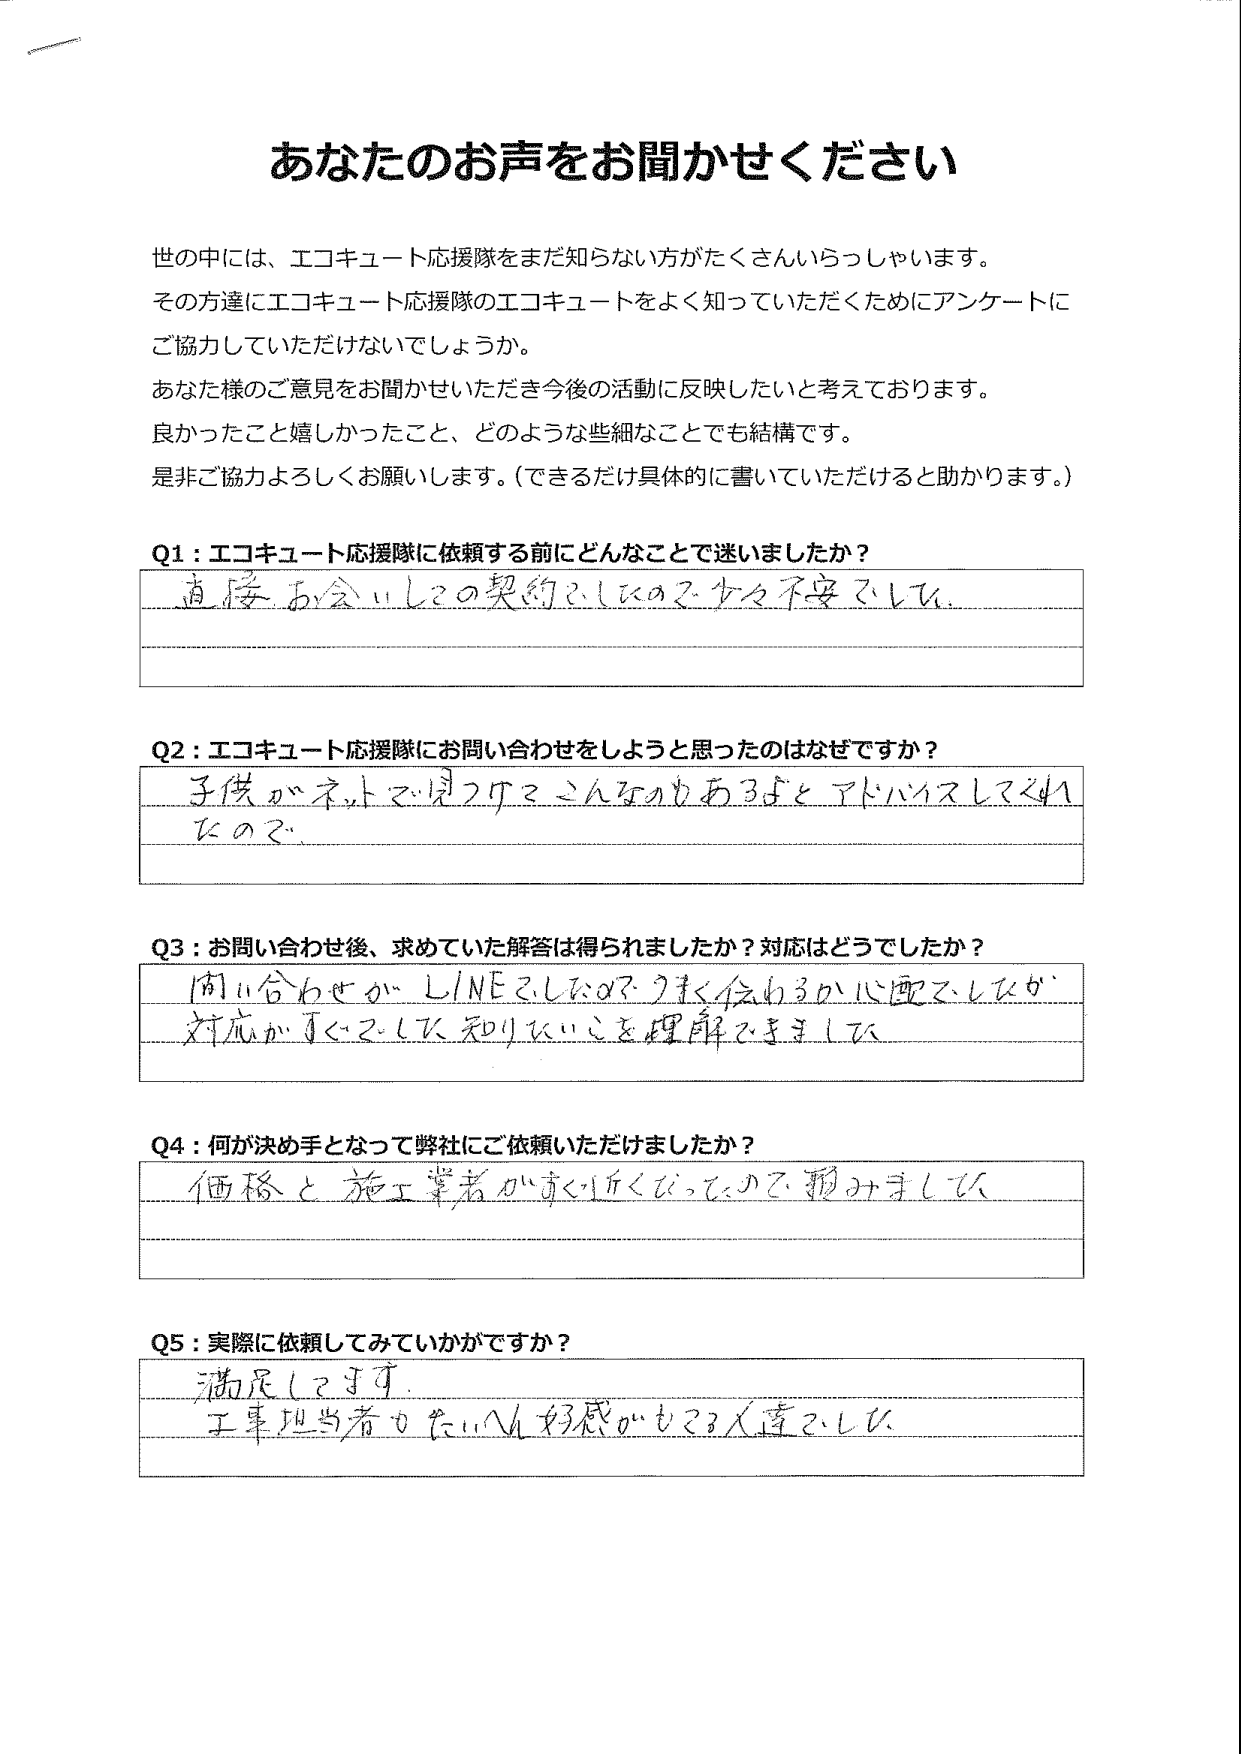 あなたのお声をお聞かせください
世の中には、エコキュート応援隊をまだ知らない方がたくさんいらっしゃいます。
その方達にエコキュート応援隊のエコキュートをよく知っていただくためにアンケートに
ご協力していただけないでしょうか。
あなた様のご意見をお聞かせいただき今後の活動に反映したいと考えております。
良かったこと嬉しかったこと、どのような些細なことでも結構です。
是非ご協力よろしくお願いします。（できるだけ具体的に書いていただけると助かります。）
Q1：エコキュート応援隊に依頼する前にどんなことで迷いましたか？
直接お会いしての契約でしたので少々不安でした.
Q2：エコキュート応援隊にお問い合わせをしようと思ったのはなぜですか？
子供がネットで見つけてこんなのもあるよとアドバイスしてくれ
たので.
Q3：お問い合わせ後、求めていた解答は得られましたか？対応はどうでしたか？
問い合わせがLINEでしたのでうまく伝わるか心配でしたが
対応がすぐでした知りたいことを理解できました
Q4：何が決め手となって弊社にご依頼いただけましたか？
価格と施工業者がすぐ近くだったので頼みました
Q5：実際に依頼してみていかがですか？
満足してます.
工事担当者もたいへん好感がもてる人達でした